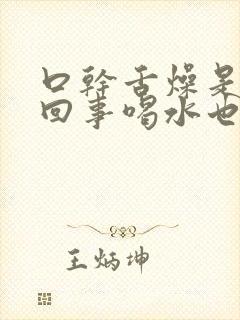 口幹舌燥是
回事喝水也
王炳坤